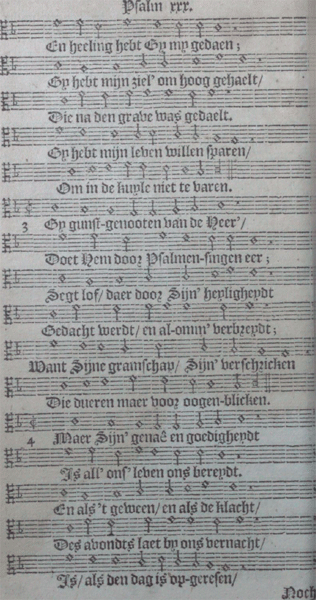 Psalm xxx.
En heeling hebt Gy my gedaen;
Gy hebt mijn ziel' om hoog gehaelt/
Die na den grave was gedaelt.
Gy hebt mijn leven willen sparen/
Om in de kuyle niet te varen.
3 Gy gunst-genooten van de Heer'/
Doet Hem door Psalmen-singen eer;
Segt lof/ daer door Sijn' heyligheydt
Gedacht werdt/ en al-omm' verbreydt;
Want Sijne gramschap/ Sijn' verschricken
Die dueren maer voor oogen-blicken.
4 Maer Sijn' genaê en goedigheydt
Is all' ons' leven ons bereydt.
En als 't geween/ en als de klacht/
Des avondts laet by ons vernacht/
Is/ als den dag is op-geresen/
Noch